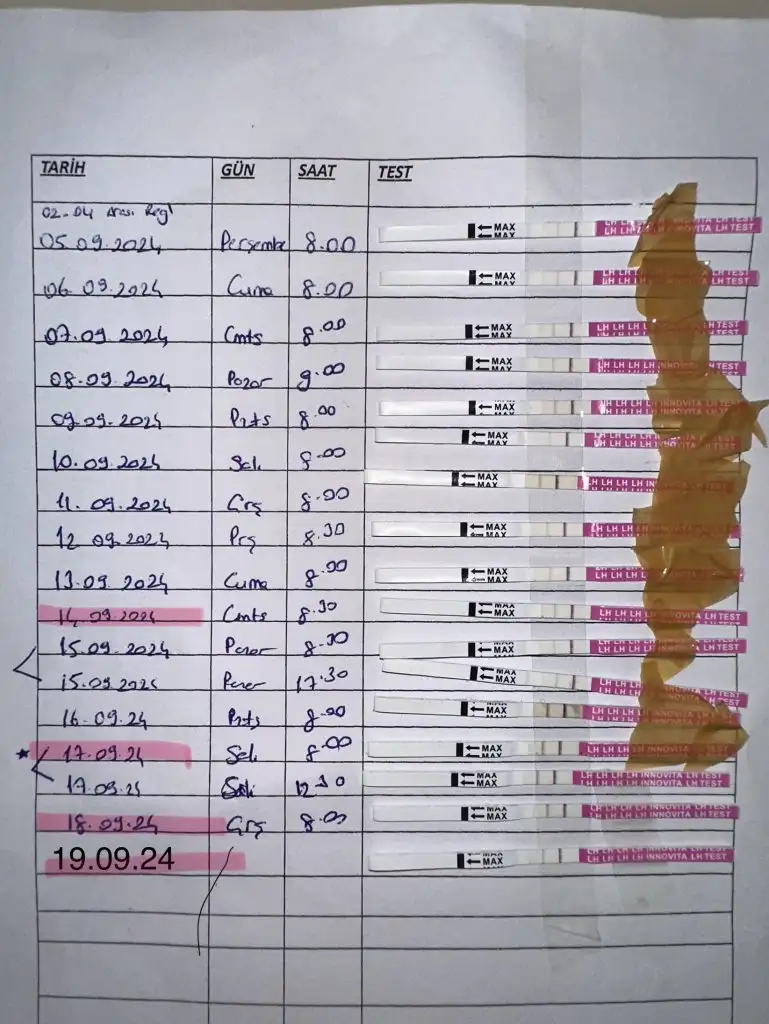 TARİH GÜN SAAT TEST
02-04 Arası Regl
05.09.2024 Perşembe 8.00 MAX MAX LH TEST
06.09.2024 Cuma 8.00 MAX MAX LH TEST
07.09.2024 Cmts 8.00 MAX MAX LH LH LH LH TEST
08.09.2024 Pazar 9.00 MAX MAX LH LH LH LH INNOVITA LH TEST
09.09.2024 Przts 8.00 MAX MAX LH LH LH LH INNOVITA LH TEST
10.09.2024 Salı 9.00 MAX MAX LH LH LH LH TEST
11.09.2024 Çrş 8.00 MAX MAX LH LH LH LH INNOVITA LH TEST
12 09.2024 Prş 8.30 MAX LH LH LH LH TEST
13.09.2024 Cuma 8.00 MAX LH LH LH LH TEST
14.09.2024 Cmts 8.30 MAX MAX LH LH LH LH INNOVITA LH TEST
15.09.2024 Pazar 8.30 MAX MAX LH LH LH LH TEST
15.09.2024 Pazar 17.30 MAX MAX LH LH LH LH TEST
16.09.24 Przts 8.00 MAX MAX LH LH LH LH INNOVITA LH TEST
17.09.24 Salı 8.00 MAX MAX LH LH LH LH INNOVITA LH TEST
17.09.24 Salı 12 30 MAX MAX LH LH LH LH INNOVITA LH TEST
18.09.24 Çrş 8.00 MAX MAX LH LH LH LH INNOVITA LH TEST
19.09.24 MAX MAX LH LH LH LH INNOVITA LH TEST